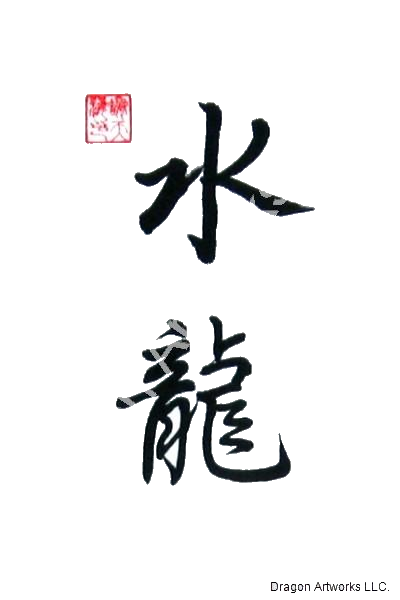 水
龍
Dragon Artworks LLC.